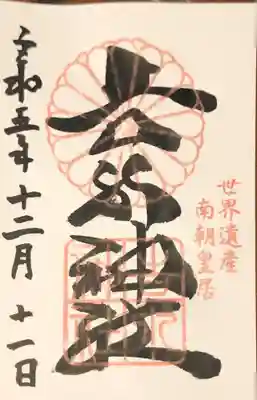 世界遺産
南朝皇居
吉水神社
令和五年十二月十一日